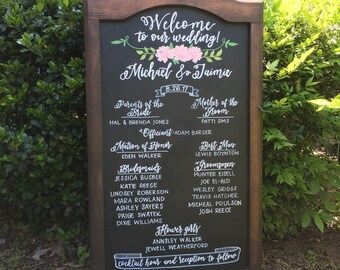 Welcome
to our wedding!
Michael & Jaimie
8.26.17
Parents of the
Bride
HAL & BRENDA JONES
Mother of the
Groom
PATTI SIMS
Officiant: ADAM BARGER
Matron of Honor
EDEN WALKER
Best Man
LEWIS BOYNTON
Bridesmaids
JESSICA BUSBEE
KATIE REESE
LINDSEY ROBERSON
MARA ROWLAND
ASHLEY SAYERS
PAIGE SWATEK
DIXIE WILLIAMS
Groomsmen
HUNTER EISELL
JOE EL-
WESLEY GRIGGS
TRAVIS HATCHER
MICHEAL POULSON
JOSH REECE
Flower girls
ANNSLEY WALKER
JEWELL WEATHERFORD
cocktail hour and reception to follow